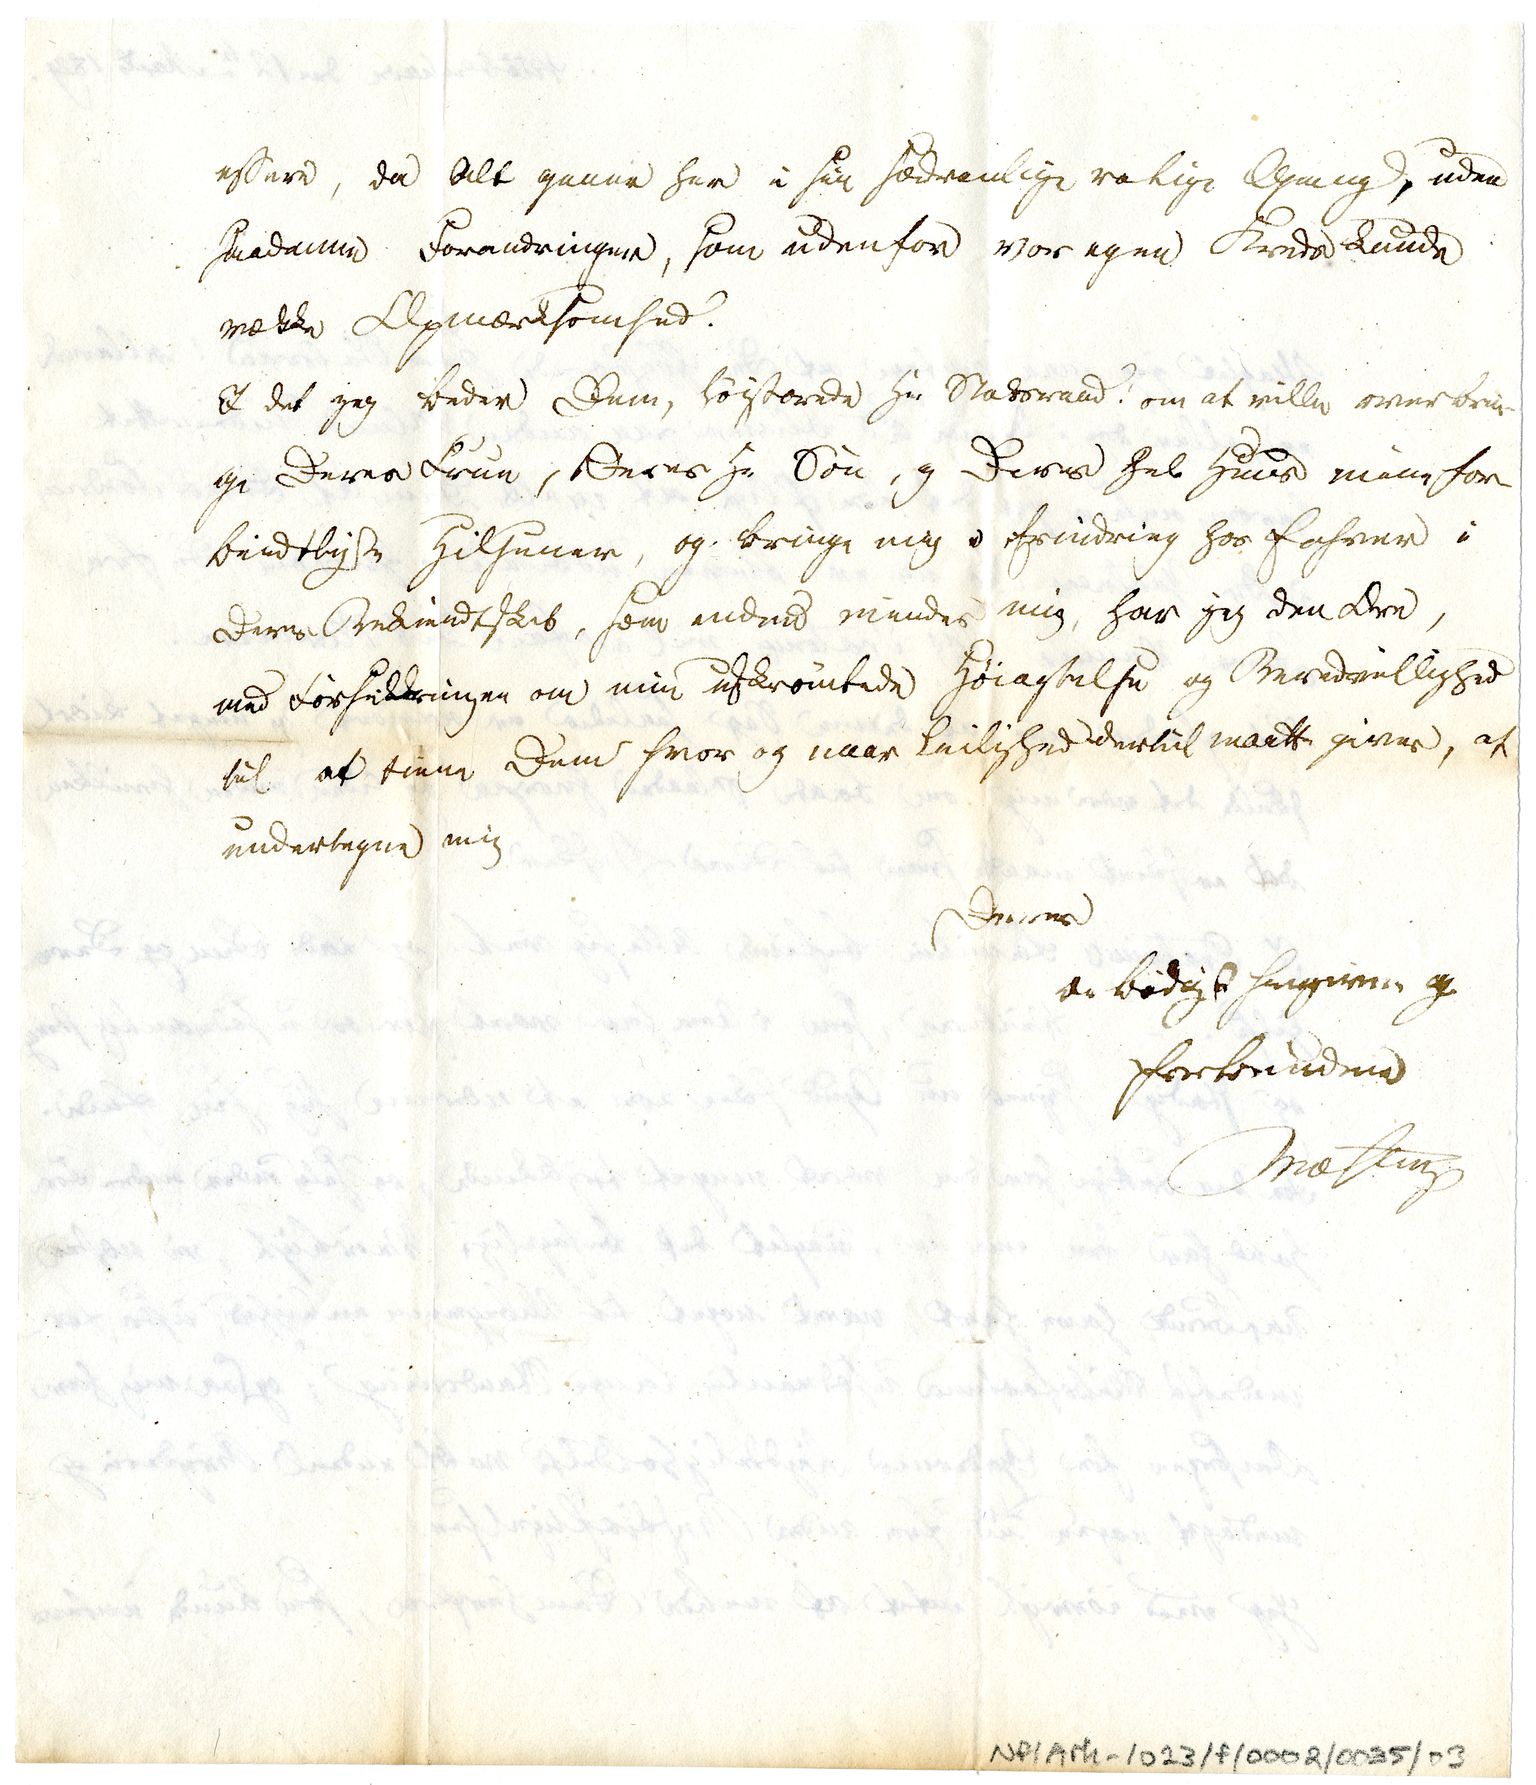 essere, da Alt gaaer her i sin sædvanlige rolige Gang, uden
saadanne Forandringer, som udenfor vor egen Kreds kunde
vække Opmærksomhed.
I det jeg beder Dem, høistærede Hr Statsraad! om at ville overbrin-
ge Deres Frue, Deres Hr Søn, og Deres hele Huus mine for-
bindtligste Hilsener, og bringe mig i Erindring hos Enhver i
Deres Bekiendtskab, som endnu mindes mig, har jeg den Ære,
med Forsikkringen om min uskrømtede Høiagtelse og Beredvillighed
til at tiene Dem hvor og naar Leilighed dertil maatte gives, at
undertegne mig
Deres
ærbødigst hengivne og
forbundne
Møsting
NF/Ark-1023/f/0002/0035/03